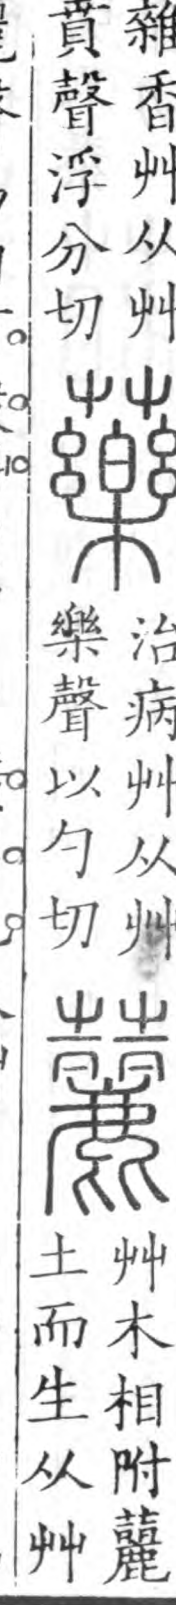 雜香艸从艸
賁聲浮分切
藥
治病艸从艸
樂聲以勺切
蘺
艸木相附蘺
土而生从艸